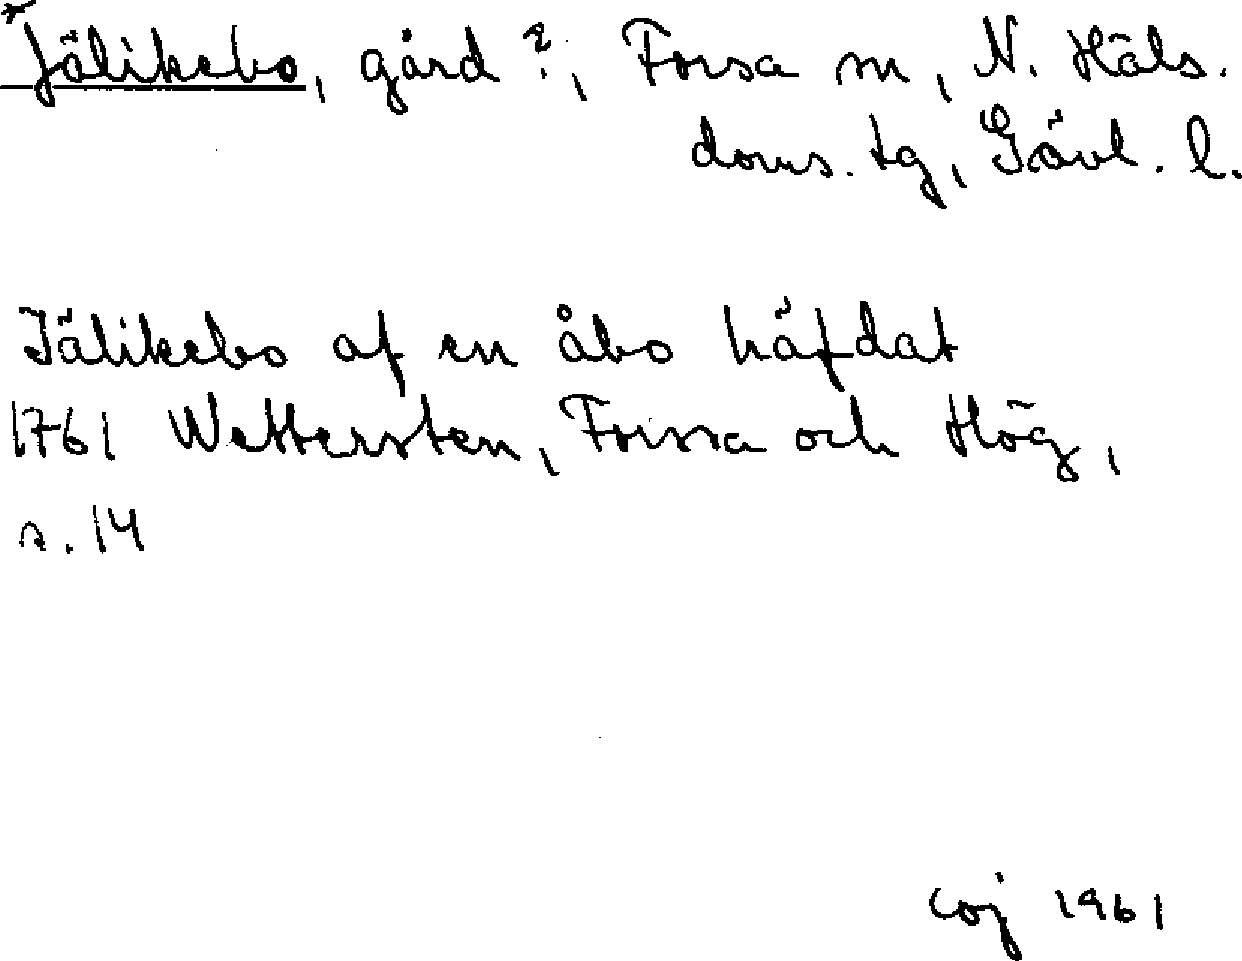 *Jälikebo, gård?, Forsa sn, N. Häls.
doms. tg, Gävl. l.
Jälikebo af en åbo häfdat
1761 Wettersten, Forssa och Hög,
s. 14
coj 1961